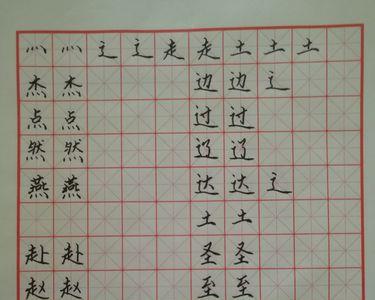 灬 灬 辶 辶 走 走 土 土 土
杰 杰 边 边 辶
点 点 过 过
然 然 辽 辽
燕 燕 达 达 辶
土 土
赴 赴 圣 圣
赵 赵 至 至